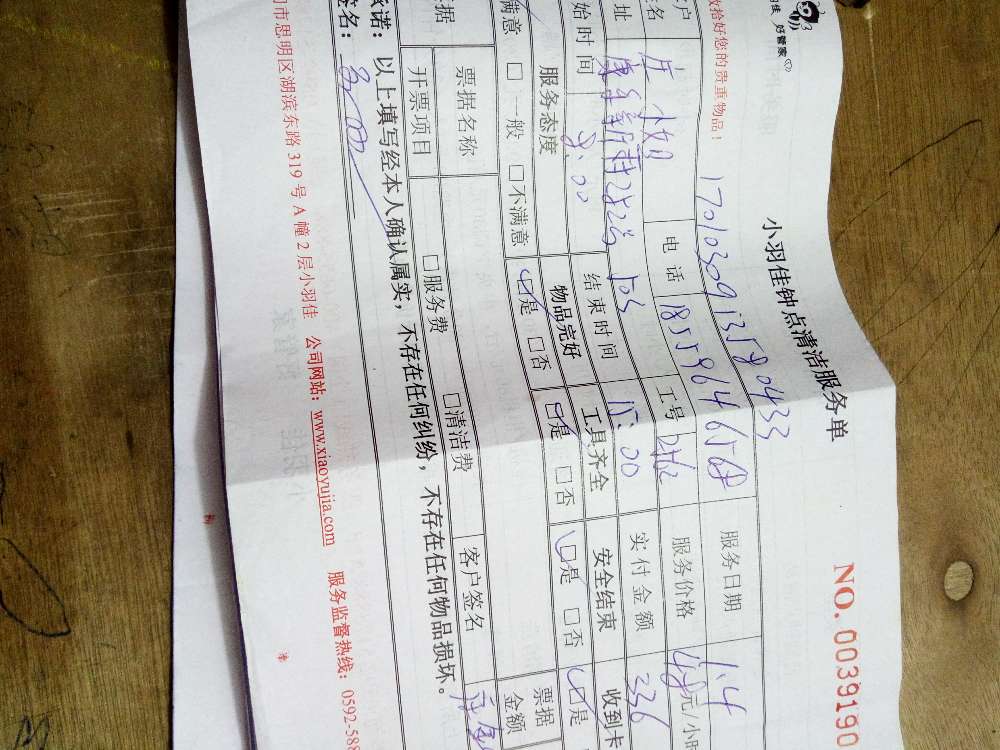 好管家
小羽佳钟点清洁服务单
NO. 0039190
收拾好您的贵重物品!
17010309135804 33
服务日期 1.4
户 小姐 电话 服务价格 48 元/小时
址
始时间 8:00 结束时间 15:00 实付金额 336
服务态度 物品完好 工具齐全 安全结束 收到卡
满意 □一般 □不满意 □是 □否 □是 □否 □是 □否 □是
票据名称 客户签名 票据金额
据 开票项目 □服务费 □清洁费
诺:以上填写经本人确认属实,不存在任何纠纷,不存在任何物品损坏。
签名:
门市思明区湖滨东路 319 号 A 幢 2 层小羽佳 公司网站:www.xiaoyujia.com 服务监督热线:0592-588